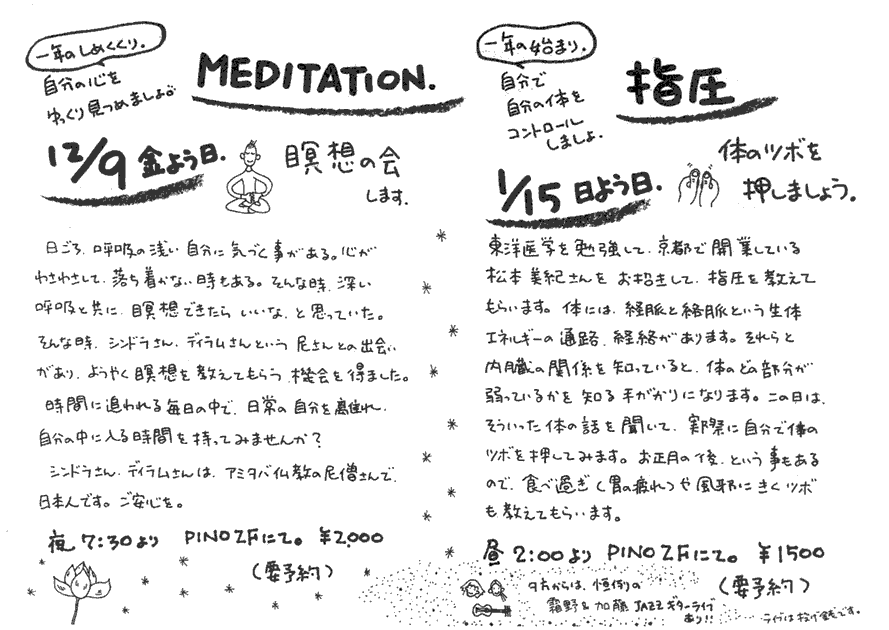 一年のしめくくり.
自分の心を
ゆっくり見つめましょう。
MEDITATION.
12/9 金よう日.
瞑想の会
します.
日ごろ、呼吸の浅い自分に気づく事がある。心が
わさわさして、落ち着かない時もある。そんな時、深い
呼吸と共に、瞑想できたら いいな、と思っていた。
そんな時、シンドラさん、ディラムさんという 尼さんとの出会い
があり、ようやく瞑想を教えてもらう 機会を得ました。
時間に追われる毎日の中で、日常の自分を離れ、
自分の中に入る時間を持ってみませんか？
シンドラさん、ディラムさんは、アミタバ仏教の尼僧さんで、
日本人です。ご安心を。
夜 7:30より PINO 2Fにて。 ¥2,000
(要予約)
一年の始まり.
自分で
自分の体を
コントロール
しましょ.
指圧
1/15 日よう日.
体のツボを
押しましょう.
東洋医学を勉強して、京都で開業している
松本美紀さんを お招きして、指圧を教えて
もらいます。体には、経脈と絡脈という生体
エネルギーの通路、経絡があります。それらと
内臓の関係を知っていると、体のどの部分が
弱っているかを知る手がかりになります。この日は、
そういった体の話を聞いて、実際に自分で体の
ツボを押してみます。お正月の後、という事もある
ので、食べ過ぎ(胃の疲れ)や風邪にきくツボ
も教えてもらいます。
昼 2:00より PINO 2Fにて。 ¥1500
(要予約)
夕方からは、恒例の
霜野&加藤 JAZZギターライブ
あり!!
ライブは投げ銭です.